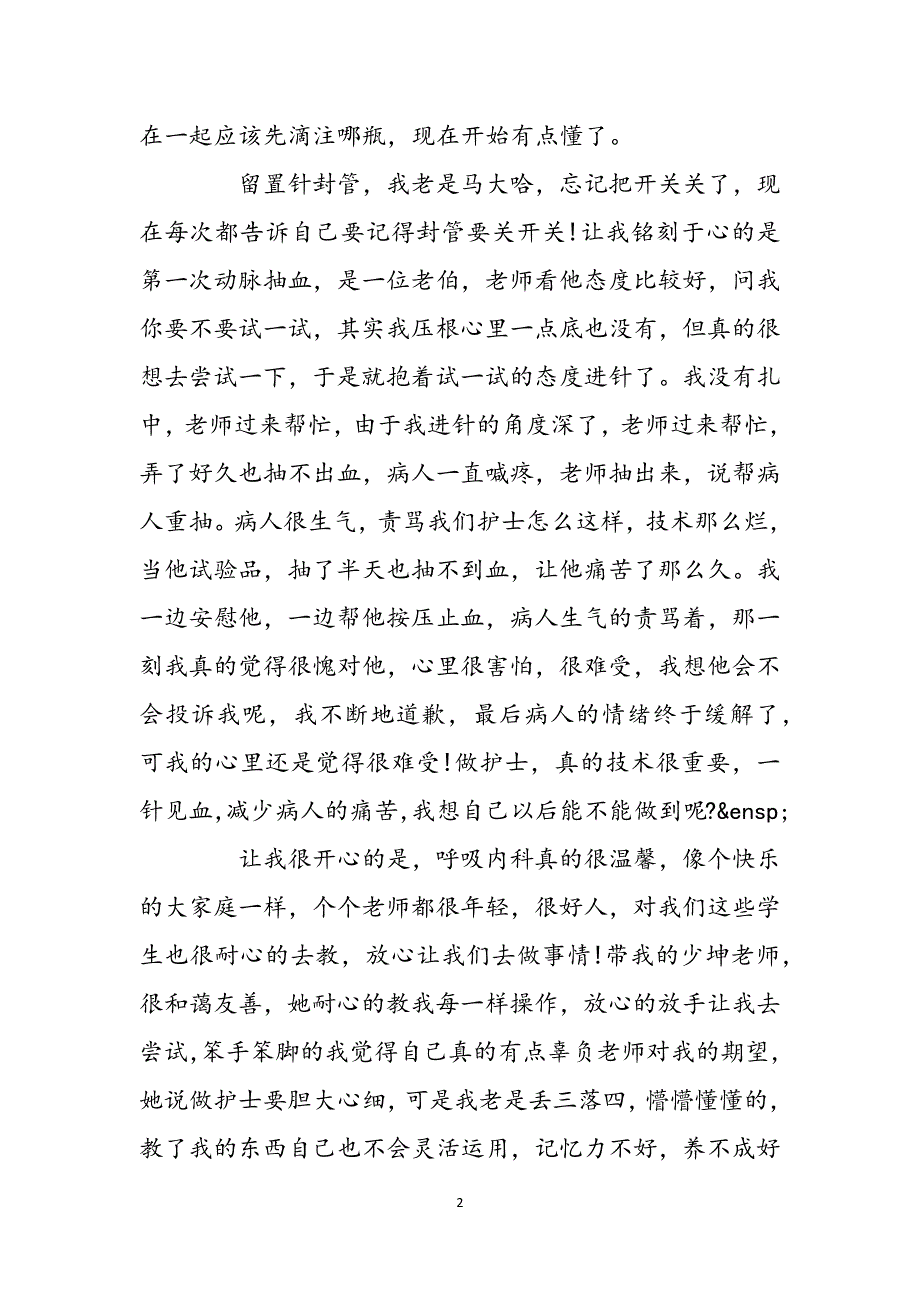 在一起应该先滴注哪瓶，现在开始有点懂了。
留置针封管，我老是马大哈，忘记把开关关了，现
在每次都告诉自己要记得封管要关开关!让我铭刻于心的是
第一次动脉抽血，是一位老伯，老师看他态度比较好，问我
你要不要试一试，其实我压根心里一点底也没有，但真的很
想去尝试一下，于是就抱着试一试的态度进针了。我没有扎
中，老师过来帮忙，由于我进针的角度深了，老师过来帮忙，
弄了好久也抽不出血，病人一直喊疼，老师抽出来，说帮病
人重抽。病人很生气，责骂我们护士怎么这样，技术那么烂，
当他试验品，抽了半天也抽不到血，让他痛苦了那么久。我
一边安慰他，一边帮他按压止血，病人生气的责骂着，那一
刻我真的觉得很愧对他，心里很害怕，很难受，我想他会不
会投诉我呢，我不断地道歉，最后病人的情绪终于缓解了，
可我的心里还是觉得很难受!做护士，真的技术很重要，一
针见血,减少病人的痛苦,我想自己以后能不能做到呢?&ensp;
让我很开心的是，呼吸内科真的很温馨，像个快乐
的大家庭一样，个个老师都很年轻，很好人，对我们这些学
生也很耐心的去教，放心让我们去做事情!带我的少坤老师，
很和蔼友善，她耐心的教我每一样操作，放心的放手让我去
尝试,笨手笨脚的我觉得自己真的有点辜负老师对我的期望，
她说做护士要胆大心细，可是我老是丢三落四，懵懵懂懂的，
教了我的东西自己也不会灵活运用，记忆力不好，养不成好
2